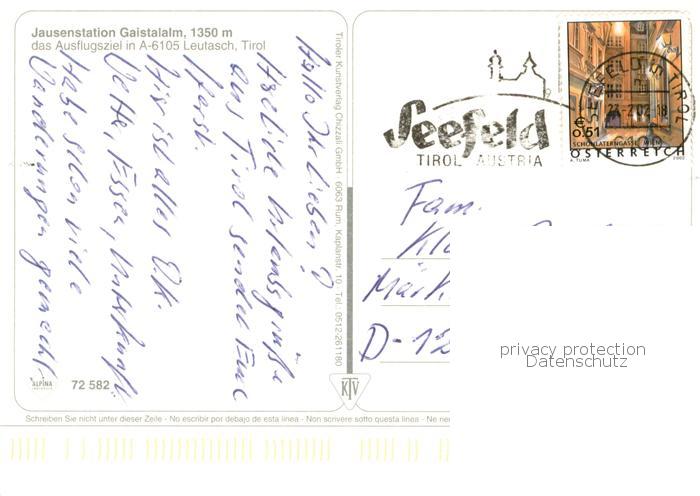 Jausenstation Gaistalalm, 1350 m
das Ausflugsziel in A-6105 Leutasch, Tirol
Hallo Ihr Lieben!
Herzliche Urlaubsgrüße
aus Tirol sendet Eure
Hier ist alles O.K.
Wette, Essen, Unterkunft.
Habe schon viele
Wanderungen gemacht.
ALPINA
72 582
Tiroler Kunstverlag Chizzali GmbH · 6063 Rum, Kaplanstr. 10 · Tel. 0512-261180
KTV
Seefeld
TIROL AUSTRIA
SEEFELD IN TIROL
€ 0,51
SCHÖNLATERNGASSE, WIEN
ÖSTERREICH
A. TUMA
2002
Fam.
Kl
Märk
D-12
privacy protection
Datenschutz
Schreiben Sie nicht unter dieser Zeile - No escribir por debajo de esta linea - Non scrivere sotto questa linea - Ne